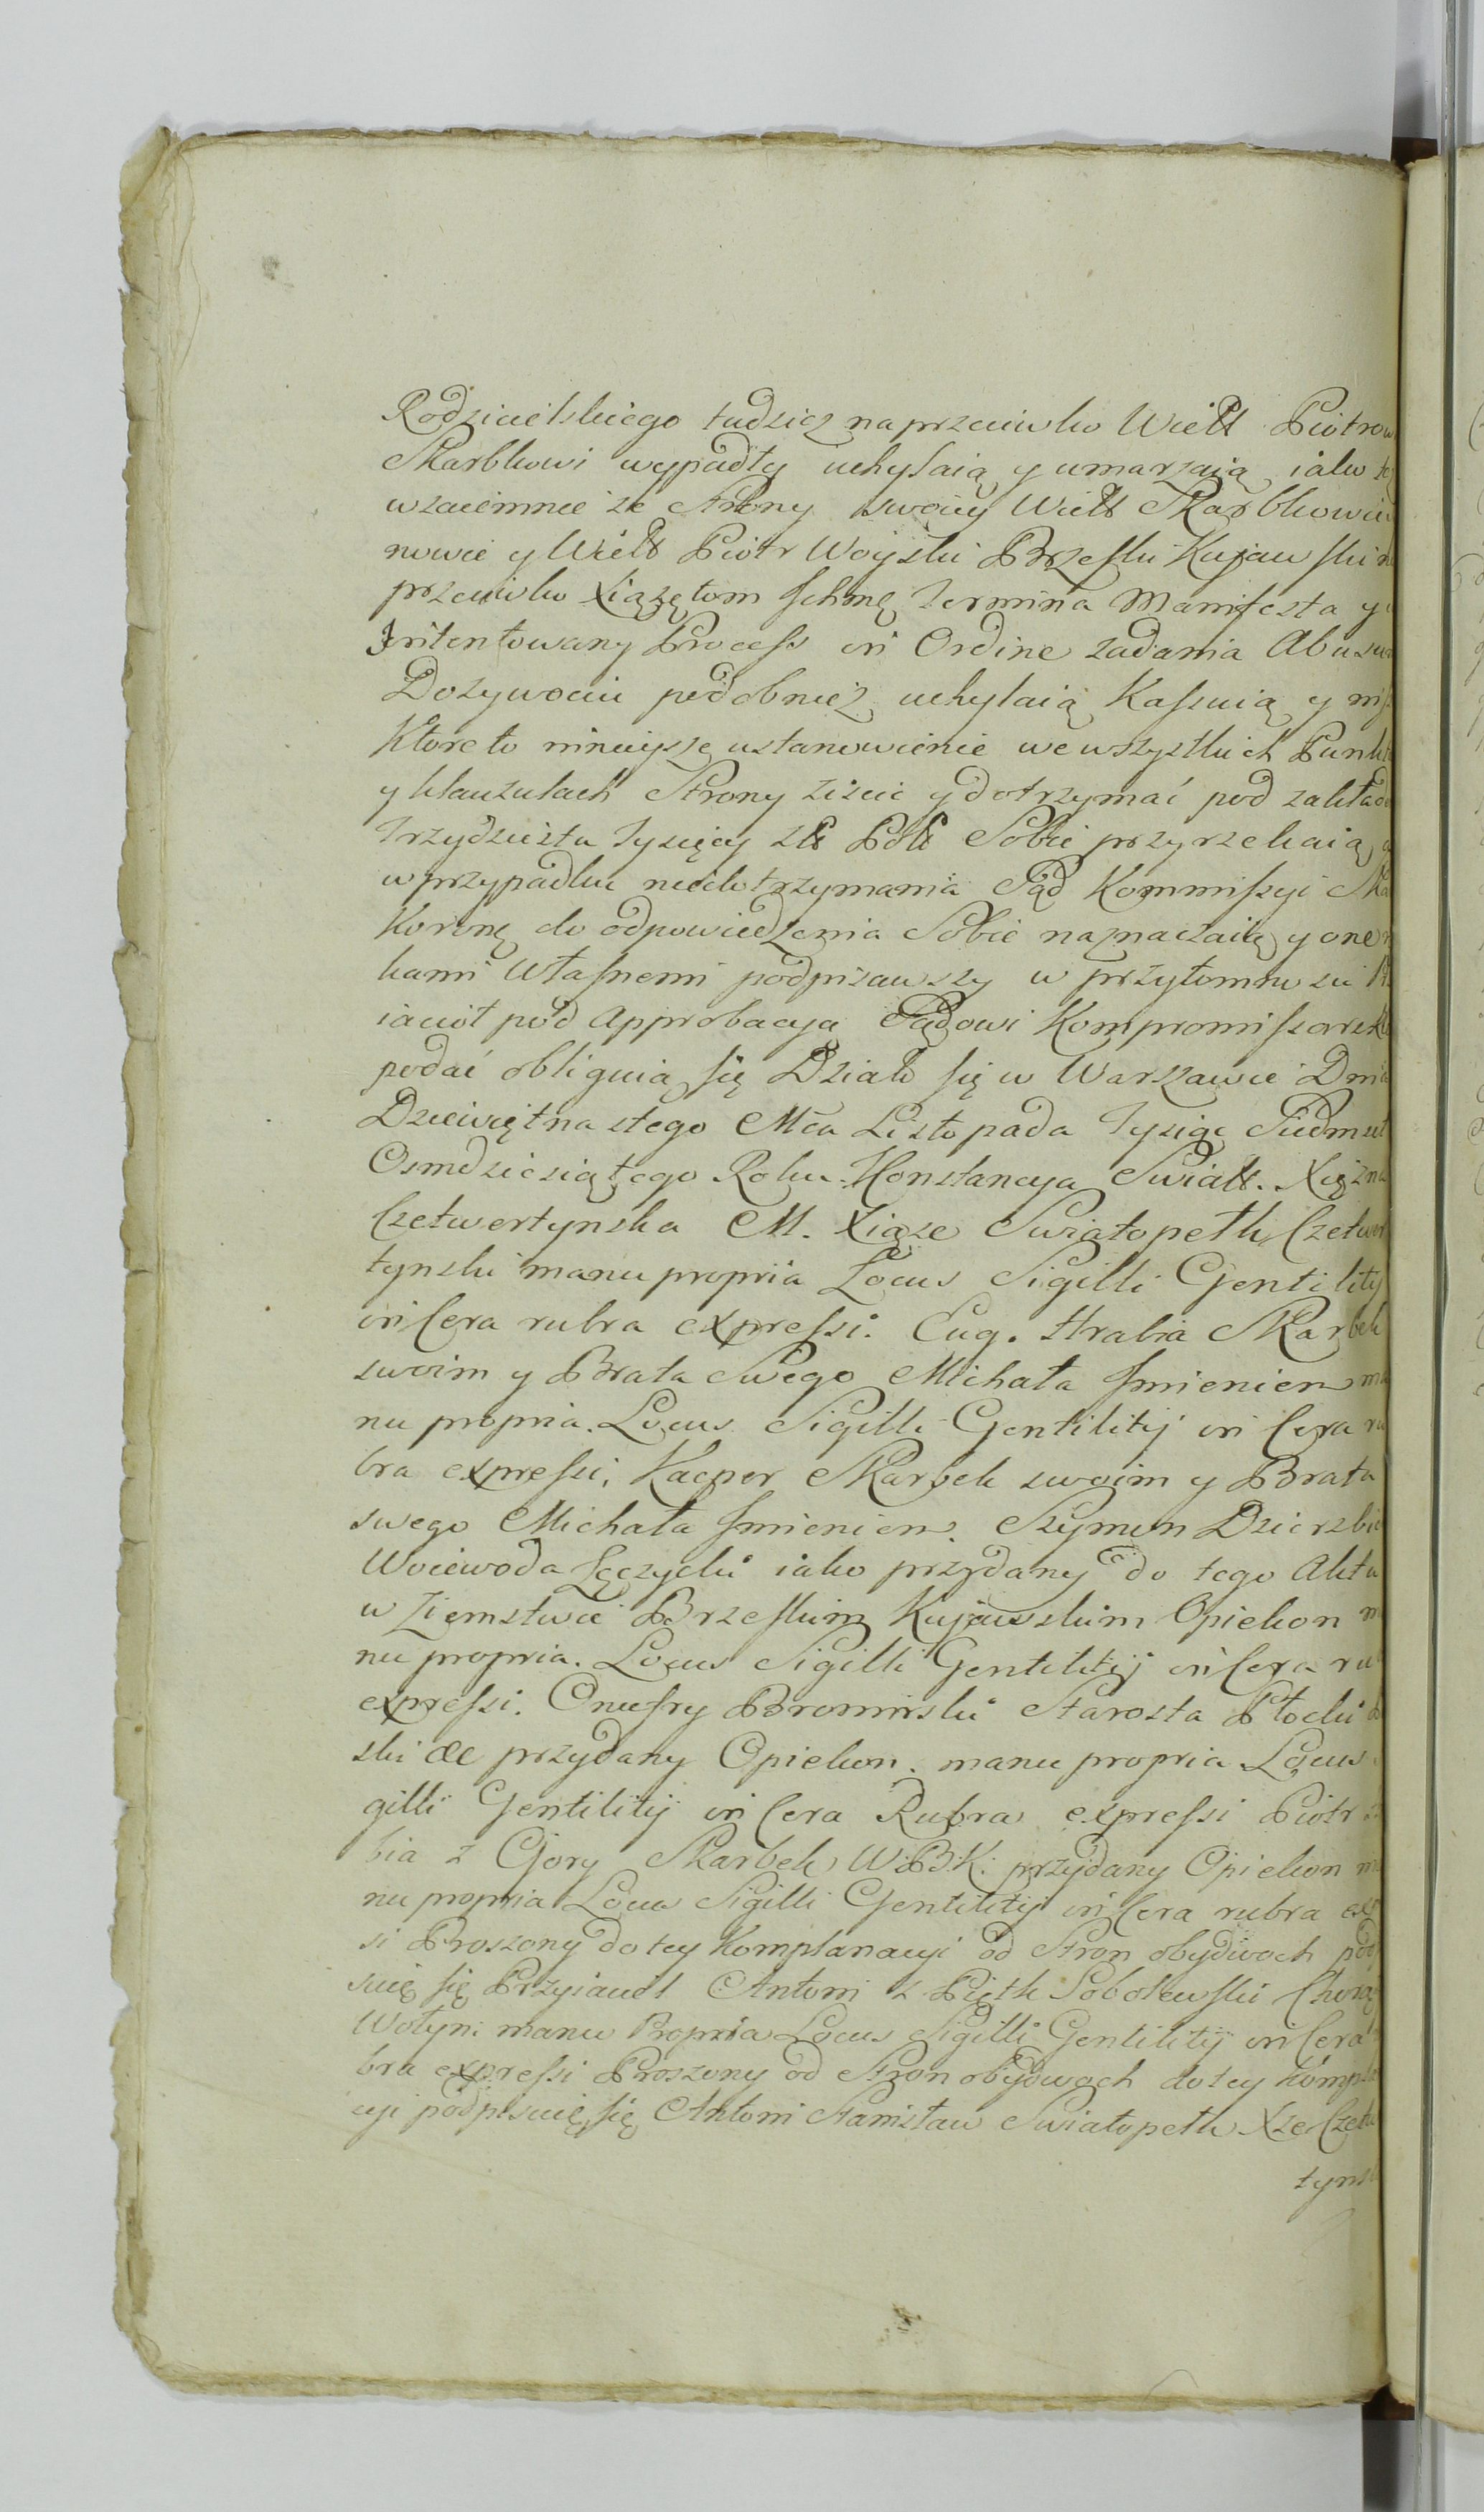 Rodzicielskiego tudzież naprzeciwko Wiel Piotrow
Skarbkowi wypadły uchylaią y umarzaią iako te
wzaiemnie ze Strony swoiey Wiel Skarbkowie
nowie y Wiel Piotr Woyski Brzeski Kujawski na
przeciwko Xiążętom Ichmę Termina Manifesta y
Jntentowany Process in Ordine zadania Abusu
Dożywocia podobnież uchylaią Kassuią y nis
Które to ninieysze ustanowienie we wszystkich Punkt
y klauzulach Strony ziścić y dotrzymać pod zakłade
Trzydziestu Tysięcy Zł Pol Sobie przyrzekaią a
w przypadku niedotrzymania Sąd Kommissyi Ska
Koronę do odpowiedzenia Sobie naznaczaią y one r
kami Własnemi podpisawszy w przytomności Prz
iaciół pod Approbacya Sądowi Kompromissarsk
podać obliguią się Działo się w Warszawie Dnia
Dziewiętnastego Mca Listopada Tysiąc Siedmset
Osmdziesiątego Roku. Konstancya Swiato. Xiężna
Czetwertynska M. Xiąże Swiatopełk Czetwer
tynski manu propria Locus Sigilli Gentility
in Cera rubra expressi. Eug. Hrabia Skarbek
swoim y Brata Swego Michała Jmieniem ma
nu propria. Locus Sigilli Gentilitij in Cera ru
bra expressi, Kacper Skarbek swoim y Brata
swego Michała Jmieniem. Szymon Dzierzbic
Woiewoda Łęczycki iako przydany do tego Aktu
w Ziemstwie Brzeskim Kujawskim Opiekon m
nu propria. Locus Sigilli Gentilitij in Cera ru
expressi. Onufry Bromirski Starosta Płocki
ski &c przydany Opiekon. manu propria Locus
gilli Gentilitij in Cera Rubra expressi Piotr
bia z Gory Skarbek W:B:K: przydany Opiekon ma
nu propria Locus Sigilli Gentilitij in Cera rubra exp
si Proszony do tey Komplanacyi od Stron obydwoch pod
suię się Przyiaciel Antoni z Piętk Sobolewski Chorąż
Wołyn: manu Propria Locus Sigilli Gentilitij in Cera
bra expressi Proszony od Stron obydwoch do tey Kompla
cyi podpisuię się Antoni Stanisław Swiatopełk Xże Czetw
tynsk